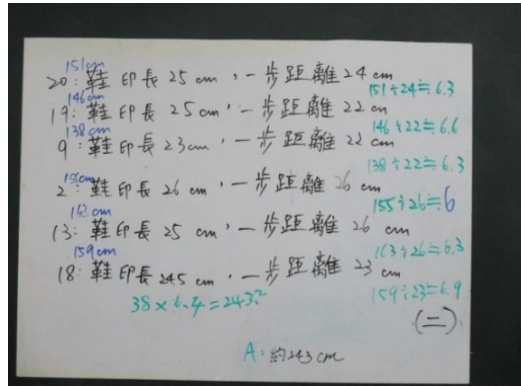 151cm
20：鞋印長25cm，一步距離24cm
151÷24≒6.3
146cm
19：鞋印長25cm，一步距離22cm
146÷22≒6.6
138cm
9：鞋印長23cm，一步距離22cm
138÷22≒6.3
155cm
2：鞋印長26cm，一步距離26cm
155÷26≒6
163cm
13：鞋印長25cm，一步距離26cm
163÷26≒6.3
159cm
18：鞋印長24.5cm，一步距離23cm
159÷23≒6.9
38×6.4=243.2
(二)
A：約243cm